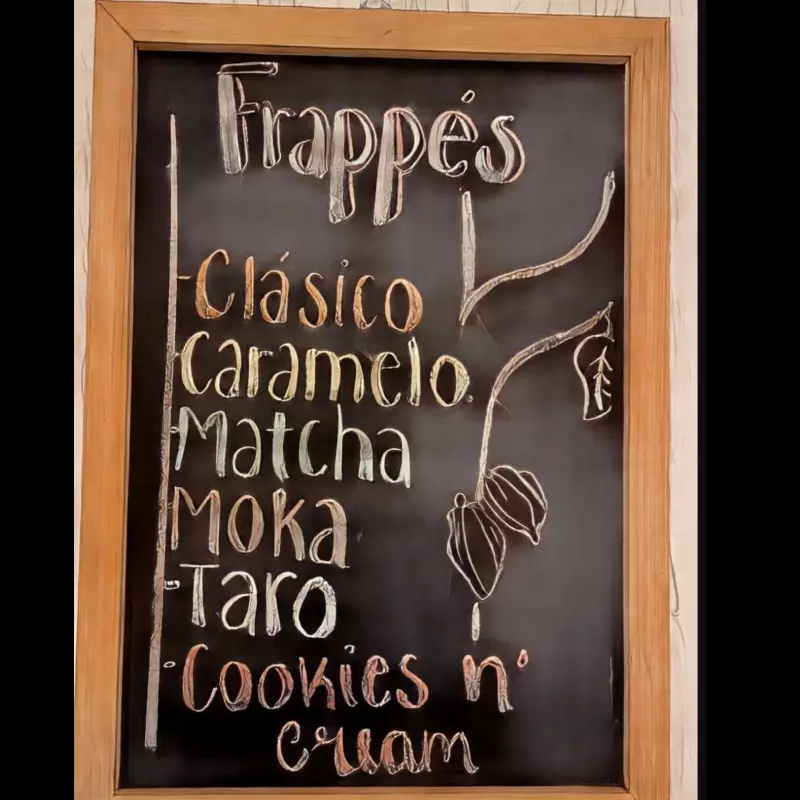 Frappés
-Clásico
Caramelo
Matcha
Moka
-Taro
Cookies n'
cream